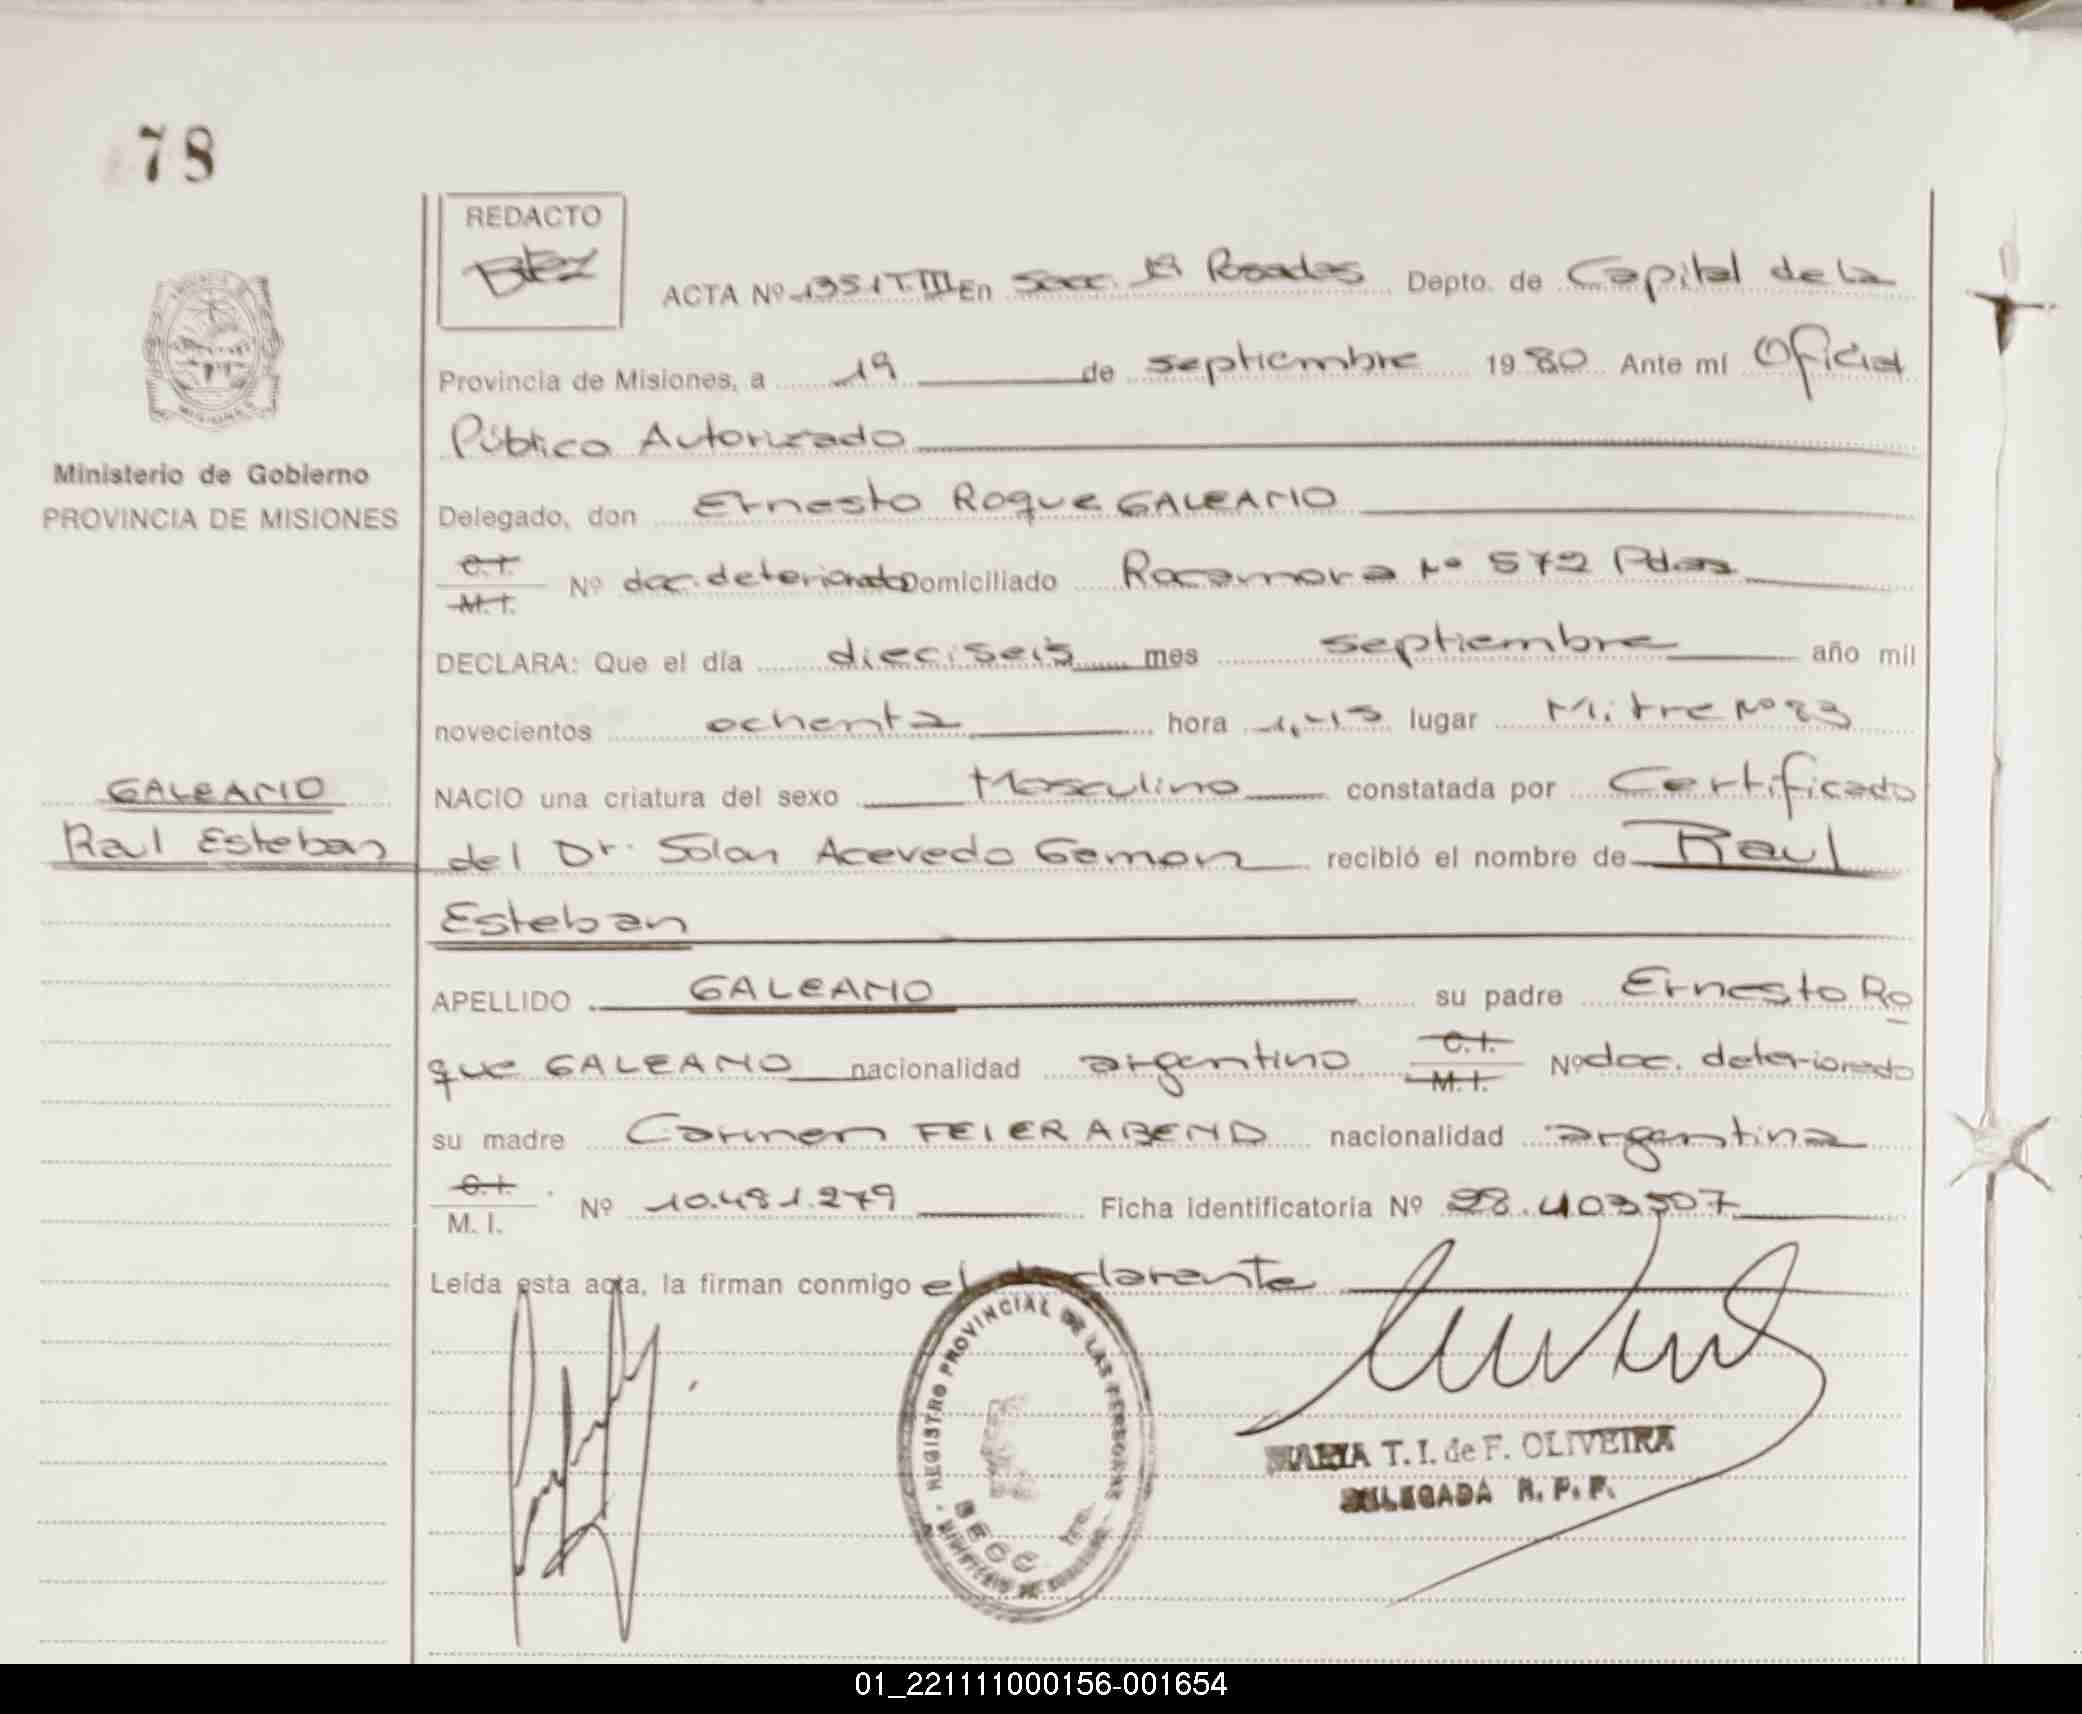 78
REDACTO
ACTA Nº 1351 T.III En Secc. 1ª Posadas Depto. de Capital de la
Provincia de Misiones, a 19 de septiembre 1980 Ante mí Oficial
Público Autorizado
Ministerio de Gobierno
PROVINCIA DE MISIONES
Delegado, don Ernesto Roque GALEANO
C.I. M.I. Nº doc. deteriorado Domiciliado Rocamora Nº 572 Pdas
DECLARA: Que el día dieciseis mes septiembre año mil
novecientos ochenta hora 1,15 lugar Mitre Nº 23
GALEANO
Raul Esteban
NACIO una criatura del sexo Masculino constatada por Certificado
del Dr. Solon Acevedo Gamon recibió el nombre de Raul
Esteban
APELLIDO GALEANO su padre Ernesto Ro
que GALEANO nacionalidad argentino C.I. M.I. Nº doc. deteriorado
su madre Carmen FEIERABEND nacionalidad argentina
C.I. M.I. Nº 10.481.279 Ficha identificatoria Nº 28.403507
Leída esta acta, la firman conmigo el declarante
REGISTRO PROVINCIAL DE LAS PERSONAS
SECC
MARIA T. I. de F. OLIVEIRA
DELEGADA R. P. P.
01_221111000156-001654